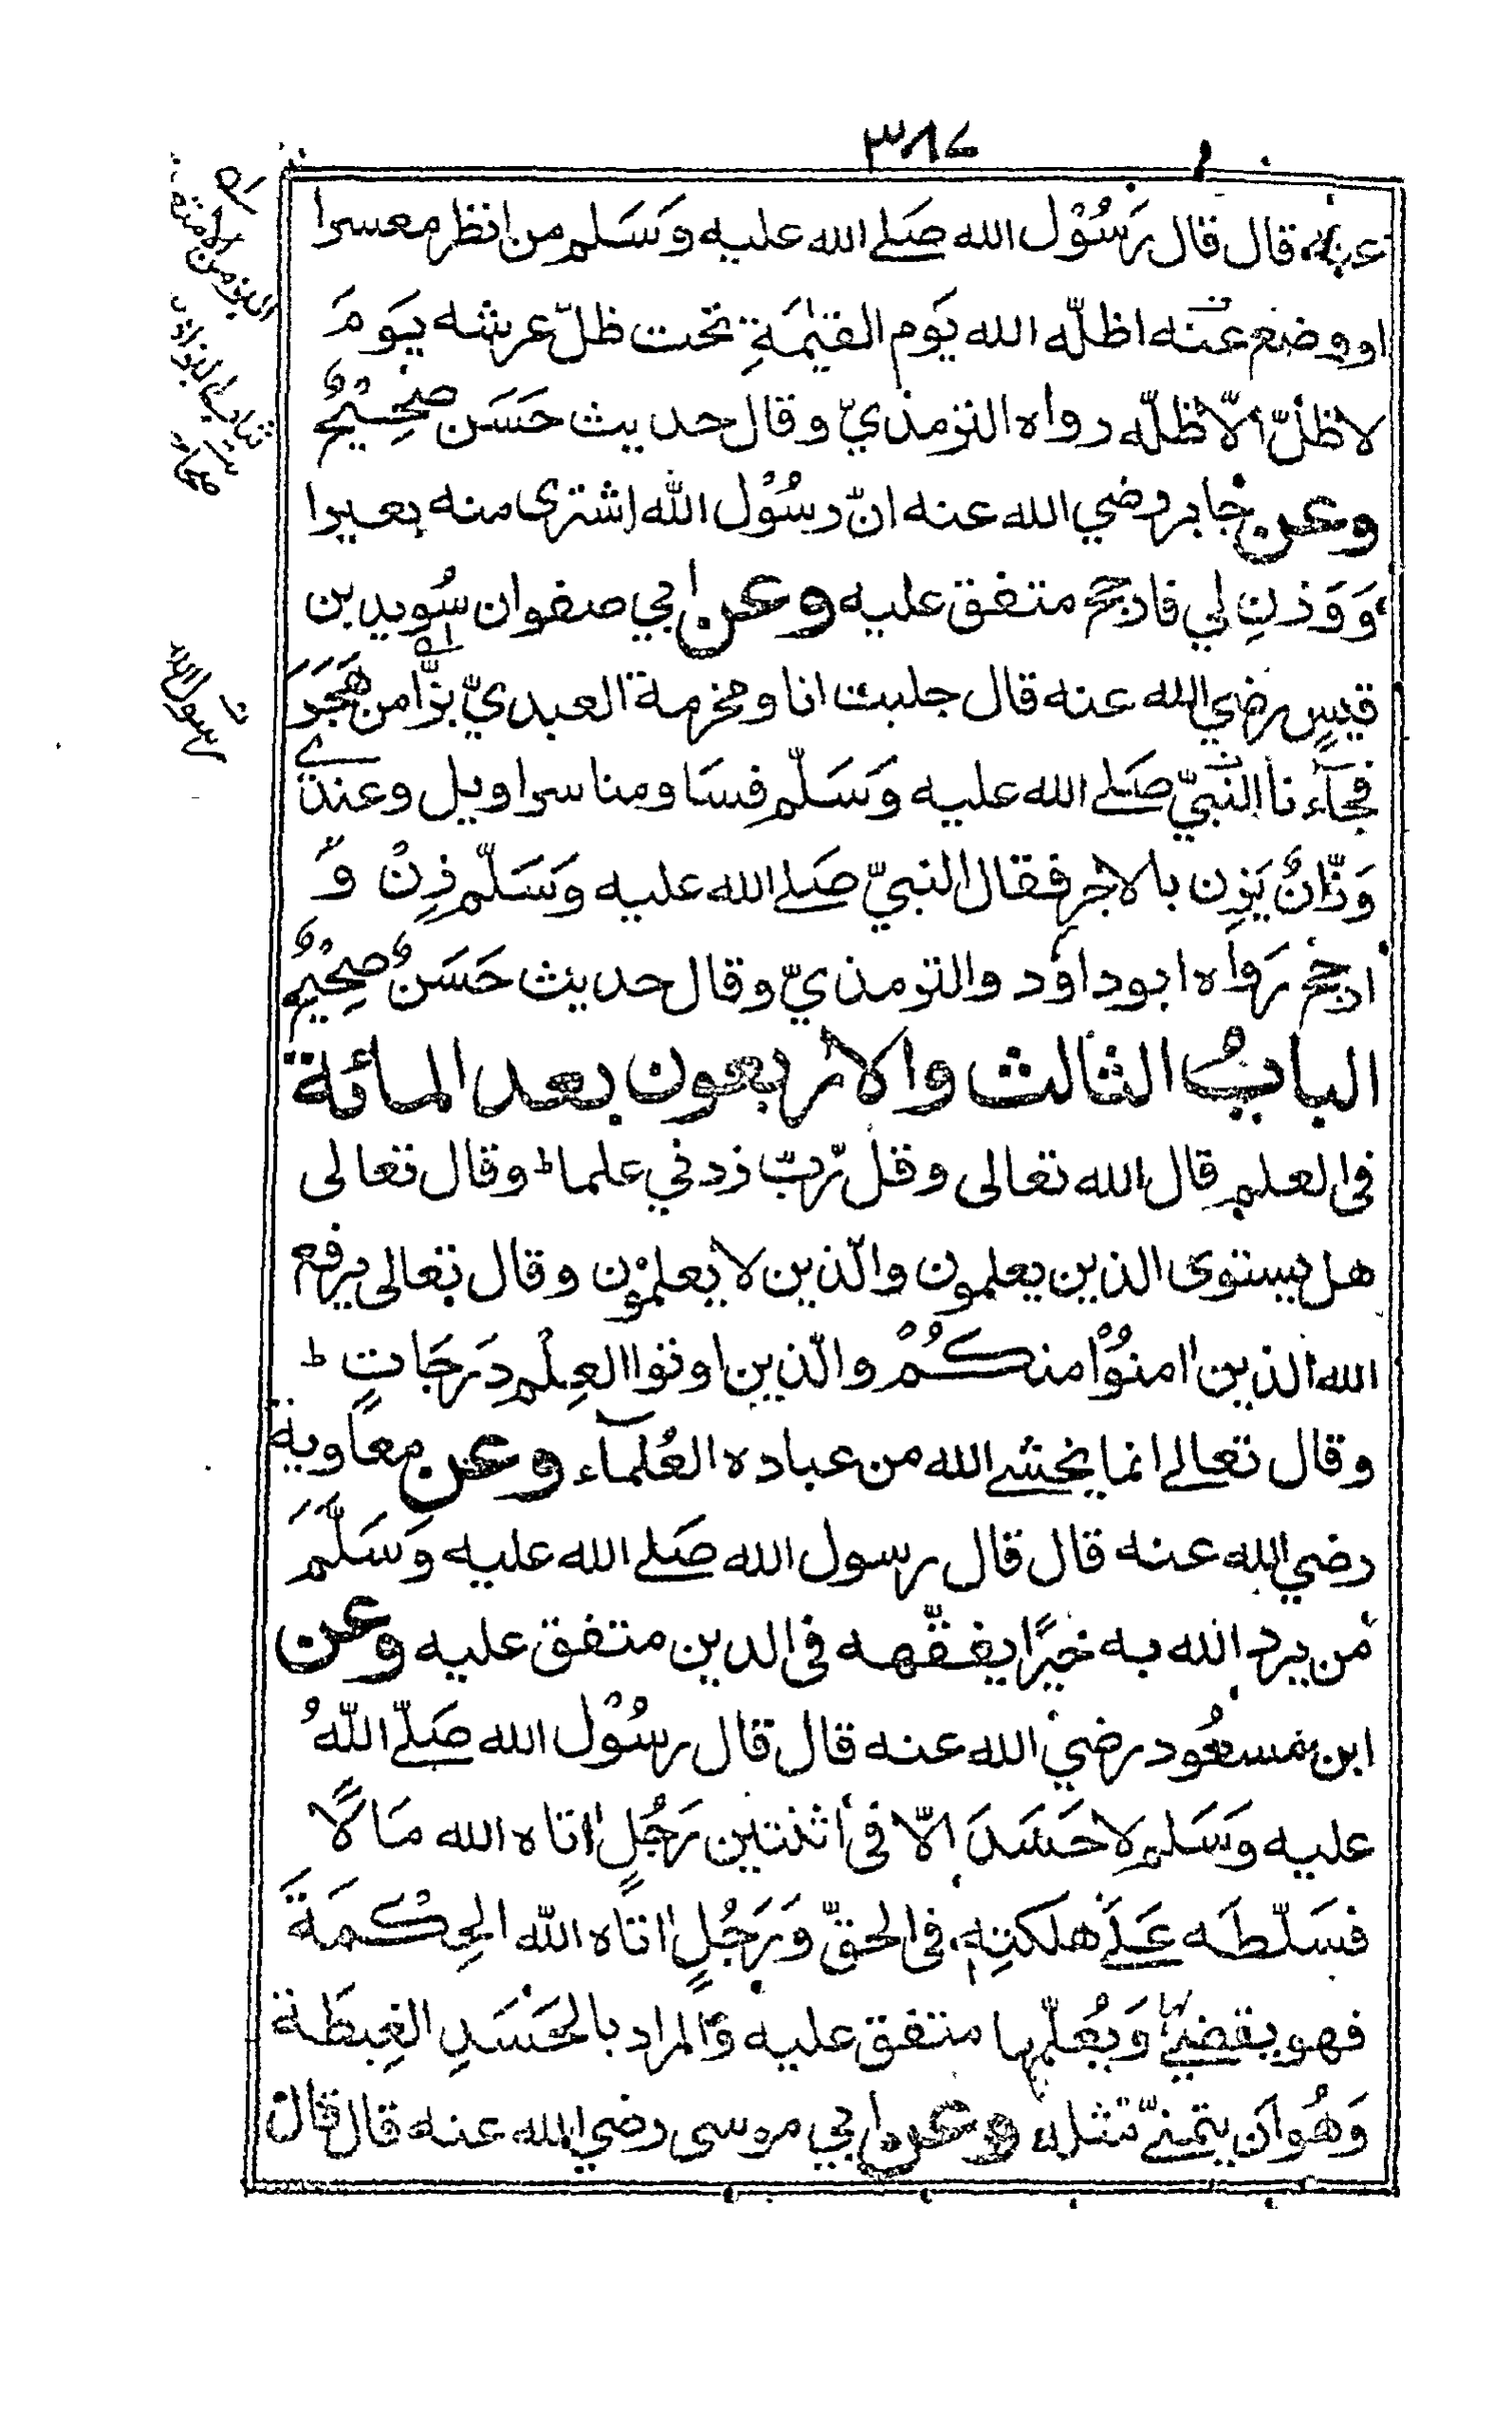 ٣٨٤
عنه قال قال رَسُوْل الله صَلے الله عليه وَسَلم من انظر معسرا
او وضع عنه اظلّه الله يَوم القيٰمَةِ تحت ظلّ عرشه يَومَ
لا ظلّ الّا ظلّه رواه الترمذيّ وقال حديث حَسَن صَحِيْحٌ
وعن جابر رضي الله عنه انّ رسُوْل الله اشترى منه بعيرا
وَوَزنِ لي فارجح متفق عليه وعن ابي صفوان سُويد بن
قيسٍ رضي الله عنه قال جلبت انا ومخرمة العبديّ بزًّا من هَجَرَ
فجآء نا النبيّ صَلے الله عليه وَسَلّم فسَاومنا سراويل وعندي
وَزّانٌ يَزِن بالاجر فقال النبيّ صَلے الله عليه وَسَلّم زِنْ وَ
ارجح رَواه ابوداؤد والترمذيّ وقال حديث حَسَنٌ صَحِيْحٌ
البابُ الثالث والاربعون بعد المائة
فى العلم قال الله تعالى وقل رّبّ زدني علما ط وقال تعالى
هل يستوى الذين يعلمون والّذين لا يعلمْوْن وقال تعالى يرفع
الله الذين اٰمنُوْا منكُمْ والّذين اوتوا العِلْم دَرَجَاتٍ ط
وقال تعالے انما يخشے الله من عباده العُلمآء وعن معاوية
رضي الله عنه قال قال رسول الله صَلے الله عليه وَسَلَّمَ
من يرد الله به خيرًا يفقّهه فى الدين متفق عليه وعن
ابن مسعُود رضيَ الله عنه قال قال رسُوْل الله صَلّے اللّٰهُ
عليه وَسَلم لا حَسَدَ الّا فى اثنتين رَجُلٍ اٰتاه الله مَالًا
فسَلّطَه عَلےٰ هلكتِهٖ فى الحقّ وَرَجُلٍ اٰتاه اللّٰه الحِكْمَةَ
فهو يقضےبها وَيُعلّمها متفق عليه وَالمراد بالحَسَدِ الغِبطَة
وَهُو اَن يتمنّے مثله وعن ابي موسى رضي الله عنه قال قال
رسول الله